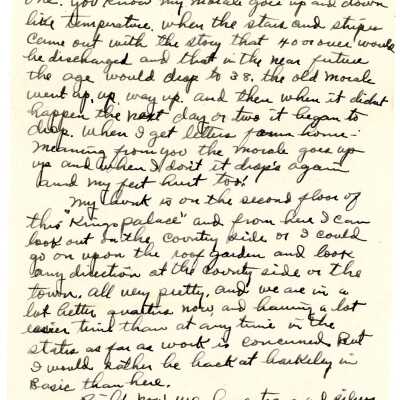 one. you know my morale goes up and down
like temperature, when the stars and stripes
came out with the story that 40 or over would
be discharged and that in the near future
the age would drop to 38, the old morale
went up, up, way up. and then when it didnt
happen the next day or two it began to
drop. when I get letters from home -
meaning from you the morale goes up
up and when I don't it drops again
and my feet hurt too!
My bunk is on the second floor of
this "Kings palace" and from here I can
look out on the country side or I could
go on upon the roof garden and look
any direction at the county side or the
town. all very pretty, and we are in a
lot better quarters now, and having a lot
easier time than at any time in the
states as far as work is concerned. But
I would rather be back at barkeley in
Basic than here.